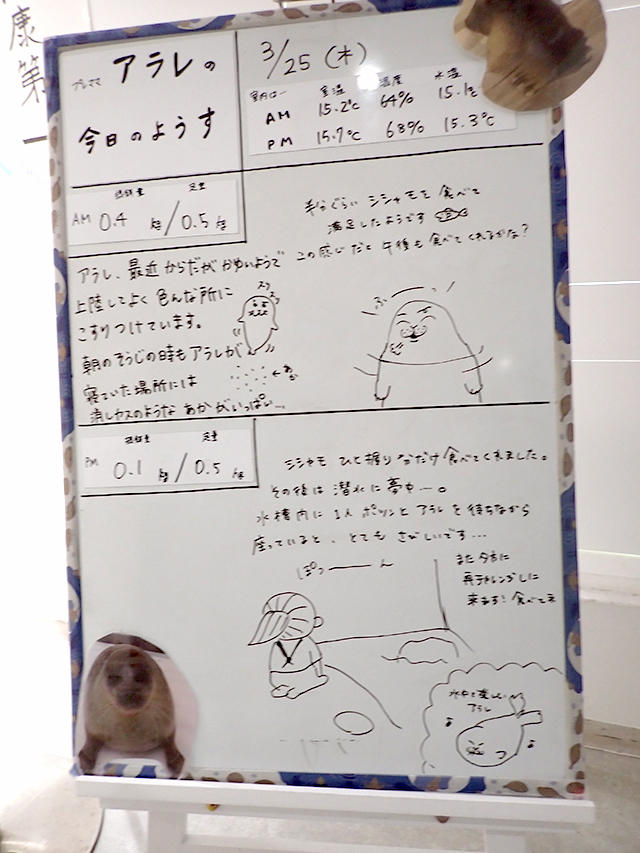 康第一
プレママ アラレの
今日のようす
3/25 (木)
室内は… 室温 湿度 水温
AM 15.2℃ 64% 15.1℃
PM 15.7℃ 68% 15.3℃
摂餌量 定量
AM 0.4 kg/0.5 kg
半分ぐらい シシャモを 食べて
満足したようです
この感じだと 午後も 食べてくれるかな?
アラレ、最近 からだが かゆいようで
上陸してよく 色んな所に
こすりつけています。
朝のそうじの時も アラレが
寝ていた場所には
消しカスのような あかがいっぱい…
スリスリ
←あか
ふ
摂餌量 定量
PM 0.1 kg/0.5 kg
シシャモ ひと握りだけ 食べてくれました。
その後は 潜水に 夢中…。
水槽内に 1人 ポツンと アラレを 待ちながら
座っていると、とても さびしいです…
ぽつーーん
また夕方に
再チャレンジしに
来ます! 食べてネ
水中で楽しい
アラレ